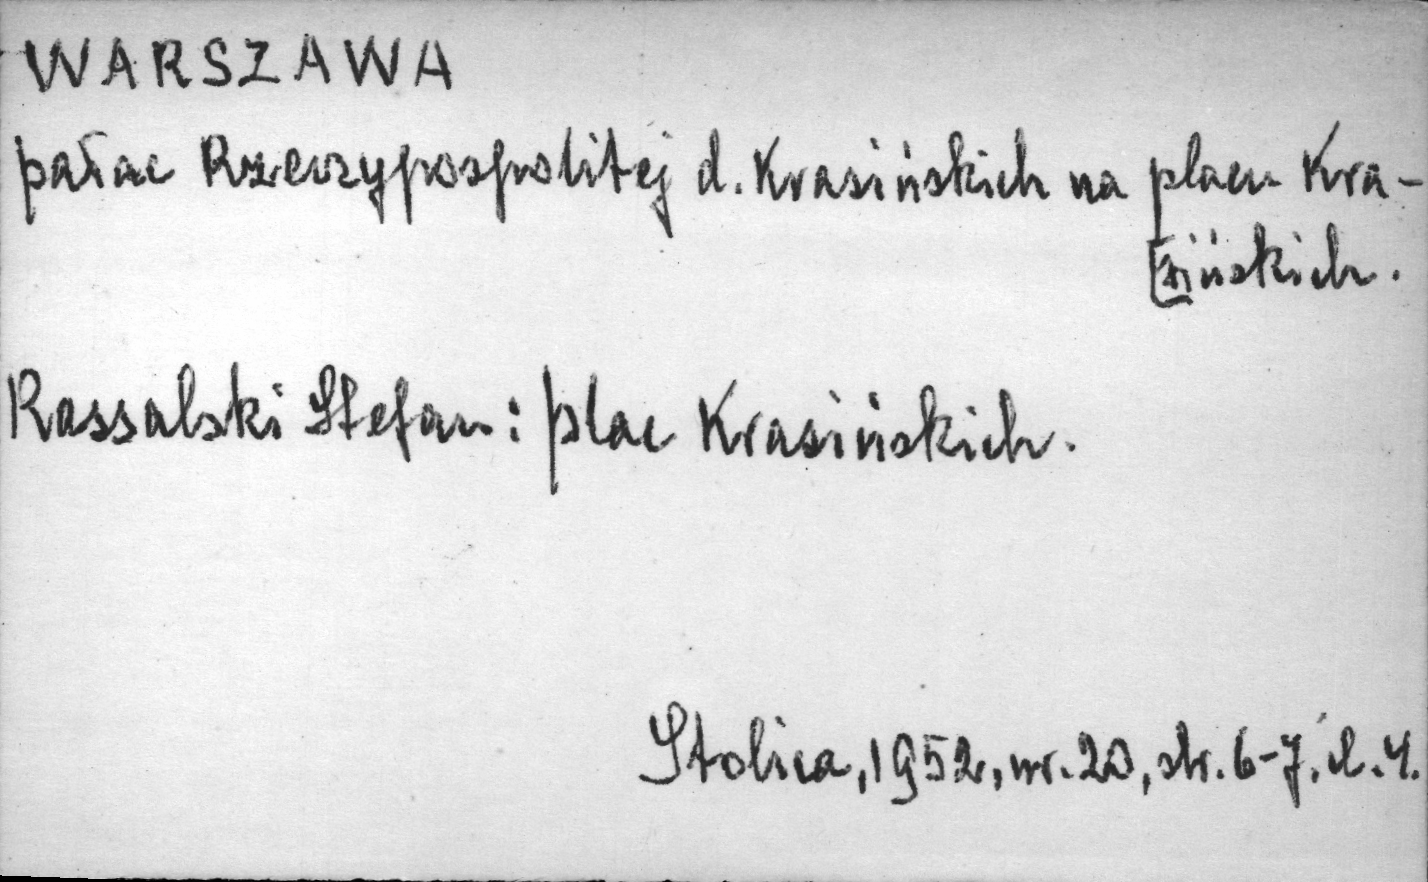 WARSZAWA
pałac Rzeczypospolitej d. Krasińskich na placu Kra-
[sińskich.
Rassalski Stefan: plac Krasińskich.
Stolica, 1952, nr. 20, str. 6-7, il. 4.